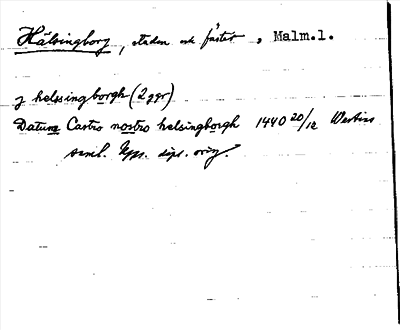 Hälsingborg, staden och fästet, Malm.l.
j helssingborgh (2 ggr)
Datum Castro nostro helsingborgh 1440 20/12 Westins
saml. Upps. dipl. orig.